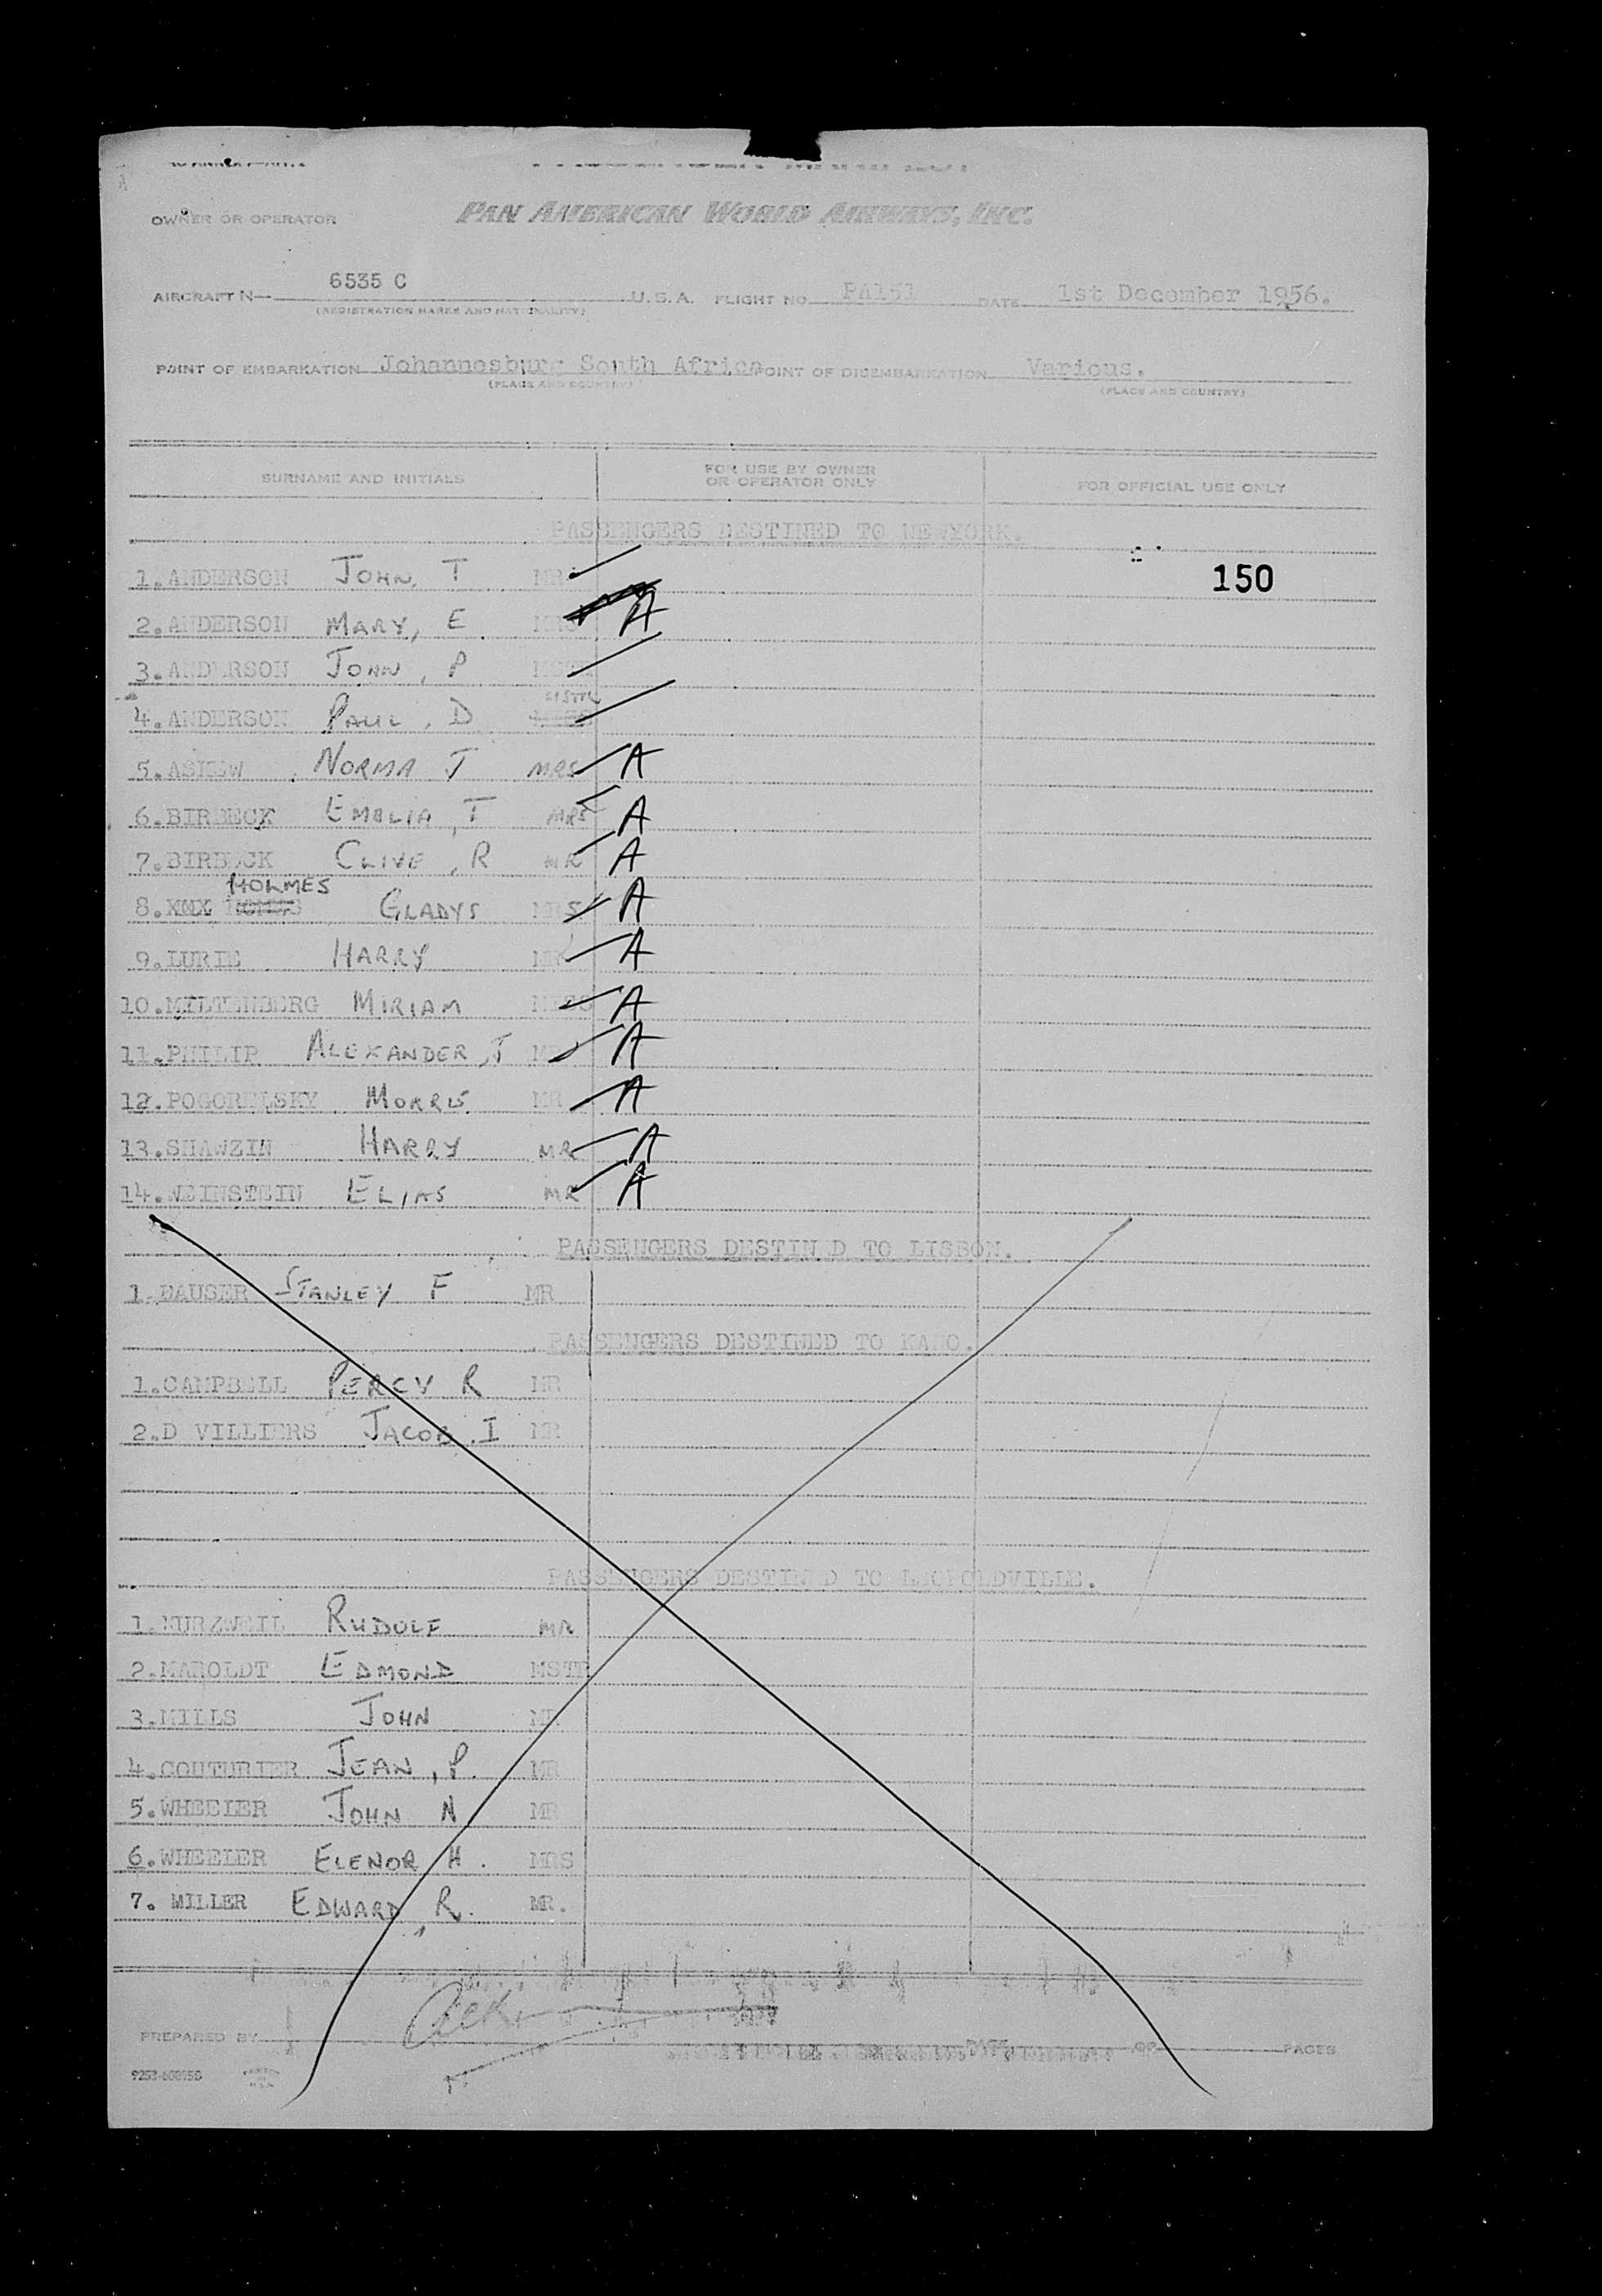 OWNER OR OPERATOR PAN AMERICAN WORLD AIRWAYS, INC.
AIRCRAFT N— 6535 C U.S.A. FLIGHT NO. PA151 DATE 1st December 1956.
(REGISTRATION MARKS AND NATIONALITY)
POINT OF EMBARKATION Johannesburg South Africa POINT OF DISEMBARKATION Various.
(PLACE AND COUNTRY) (PLACE AND COUNTRY)
SURNAME AND INITIALS FOR USE BY OWNER OR OPERATOR ONLY FOR OFFICIAL USE ONLY
PASSENGERS DESTINED TO NEWYORK.
1.ANDERSON JOHN, T MR 150
2.ANDERSON MARY, E. MRS A
3.ANDERSON JOHN, P MSTR
4.ANDERSON PAUL, D MSTR
5.ASKEW NORMA J MRS A
6.BIRBECK EMBLIA, T MRS A
7.BIRBECK CLIVE, R MR A
HOLMES
8. GLADYS MRS A
9.LURIE HARRY MR A
10.MILTENBERG MIRIAM MISS A
11.PHILIP ALEXANDER, J MR A
12.POGORELSKY MORRIS MR A
13.SHAWZIN HARRY MR A
14.WEINSTEIN ELIAS MR A
PASSENGERS DESTIN D TO LISBON.
1.DAUSER STANLEY F MR
PASSENGERS DESTINED TO KANO.
1.CAMPBELL PERCY R MR
2.D VILLIERS JACOB I MR
PASSENGERS DESTIN D TO LEOPOLDVILLE.
1.KURZWEIL RUDOLF MR
2.MAROLDT EDMOND MSTR
3.MILLS JOHN MR
4.COUTURIER JEAN, P. MR
5.WHEELER JOHN N MR
6.WHEELER ELENOR H. MRS
7. MILLER EDWARD, R. MR.
PREPARED BY OF PAGES